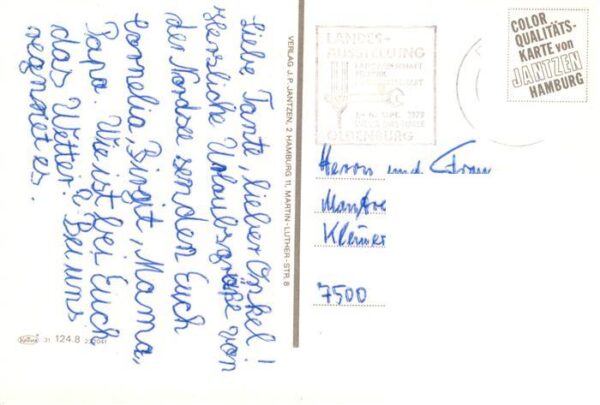 Liebe Tante, lieber Onkel!
Herzliche Urlaubsgrüße von
der Nordsee senden Euch
Cornelia, Birgit, Mama,
Papa. Wie ist bei Euch
das Wetter? Bei uns
regnet es.
VERLAG J. P. JANTZEN, 2 HAMBURG 11, MARTIN-LUTHER-STR. 8
31 124.8
LANDES-
AUSSTELLUNG
OLDENBURG
COLOR
QUALITÄTS-
KARTE von
JANTZEN
HAMBURG
Herrn und Frau
7500